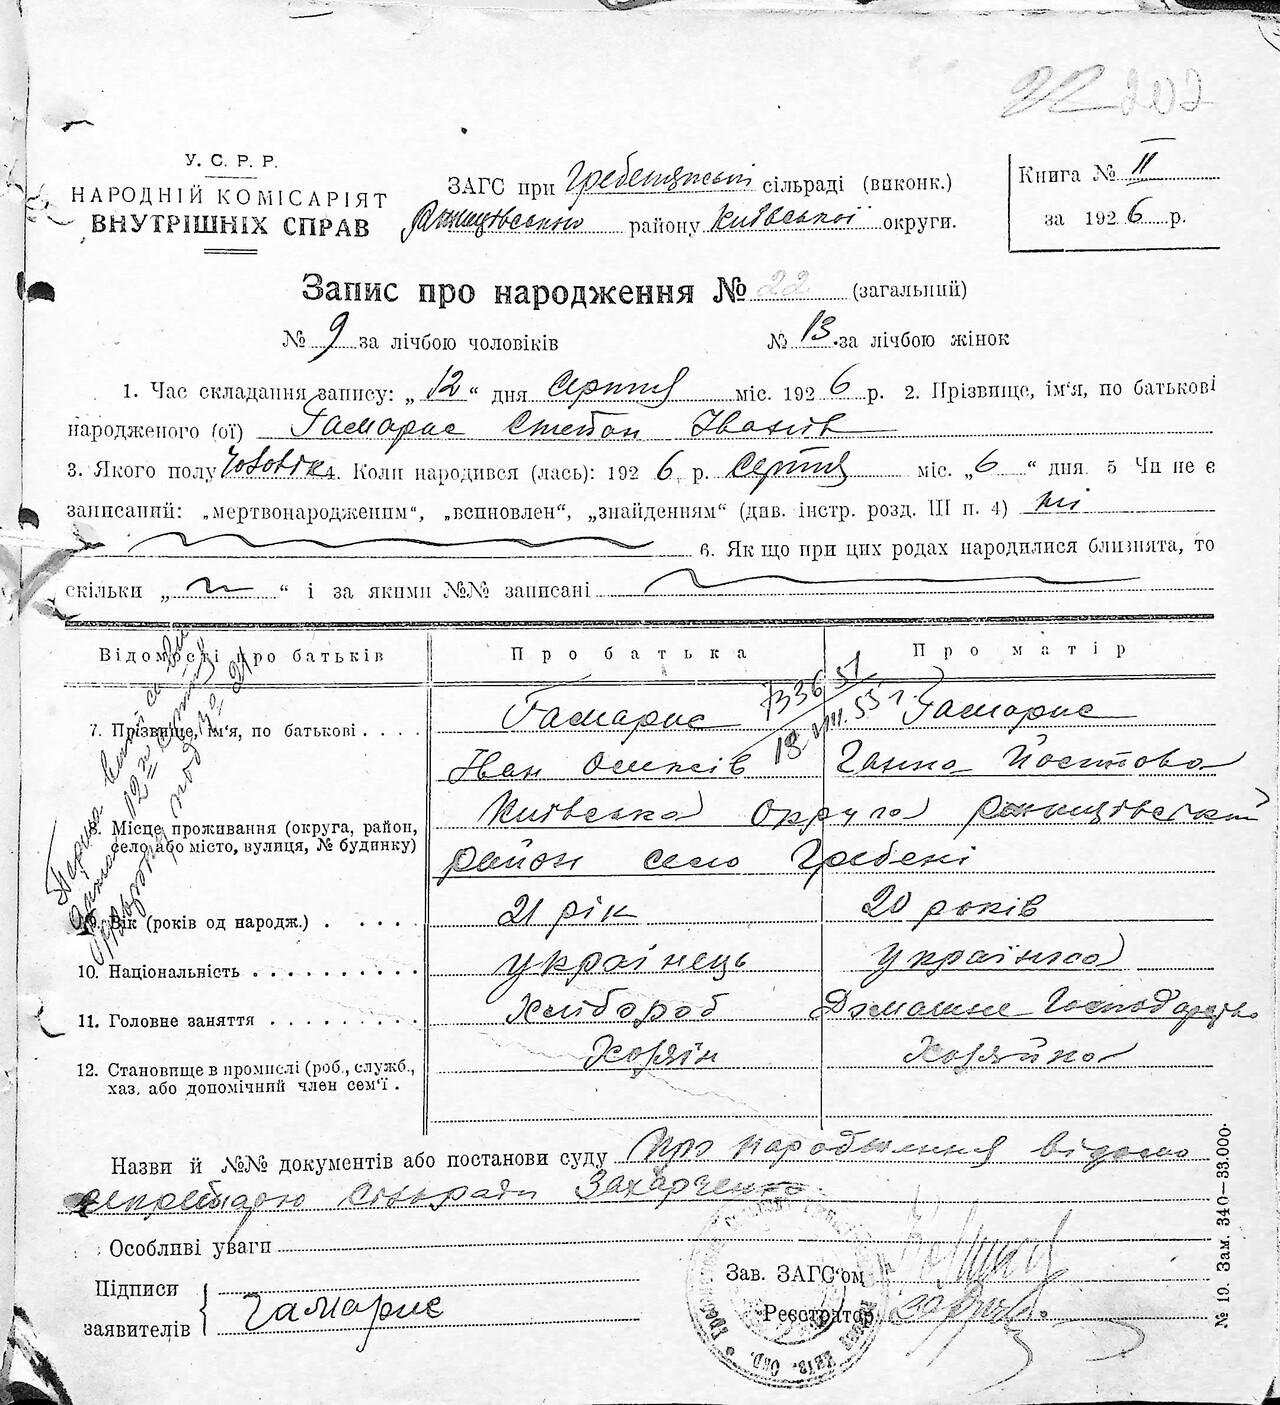 22 202
У. С. Р. Р.
НАРОДНІЙ КОМІСАРІЯТ
ВНУТРІШНІХ СПРАВ
ЗАГС при Гребенянській сільраді (виконк.)
району Київської округи.
Книга № II
за 1926 р.
Запис про народження № 22 (загальний)
№ 9 за лічбою чоловіків № 13 за лічбою жінок
1. Час складання запису: „12“ дня Серпня міс. 1926 р. 2. Прізвище, ім'я, по батькові
народженого (ої) Гамарис Степан Іванів
3. Якого полу Чоловік 4. Коли народився (лась): 1926 р. Серпня міс. „6“ дня. 5 Чи не є
записаний: „мертвонародженим“, „всиновлен“, „знайденням“ (див. інстр. розд. III п. 4) ні
6. Як що при цих родах народилися близнята, то
скільки „ “ і за якими №№ записані
Відомості про батьків Про батька Про матір
7. Прізвище, ім'я, по батькові . . . . Гамарис Гамарис
Іван Ганна
Київська Округа
8. Місце проживання (округа, район,
село або місто, вулиця, № будинку)
район село Гребені
9. Вік (років од народж.) . . . . . 21 рік 20 років
10. Національність . . . . . . . . . . українець українка
11. Головне заняття . . . . . . . . . Хлібороб Домашнє Господарство
12. Становище в промислі (роб., служб.,
хаз. або допомічний член сем'ї . Хозяїн Хозяйка
Назви й №№ документів або постанови суду Про народження відомо
секретарю сільради Захарченко
Особливі уваги
Підписи
заявителів Гамарис
Зав. ЗАГС'ом
Реєстратор
№ 19. Зам. 340—33.000.